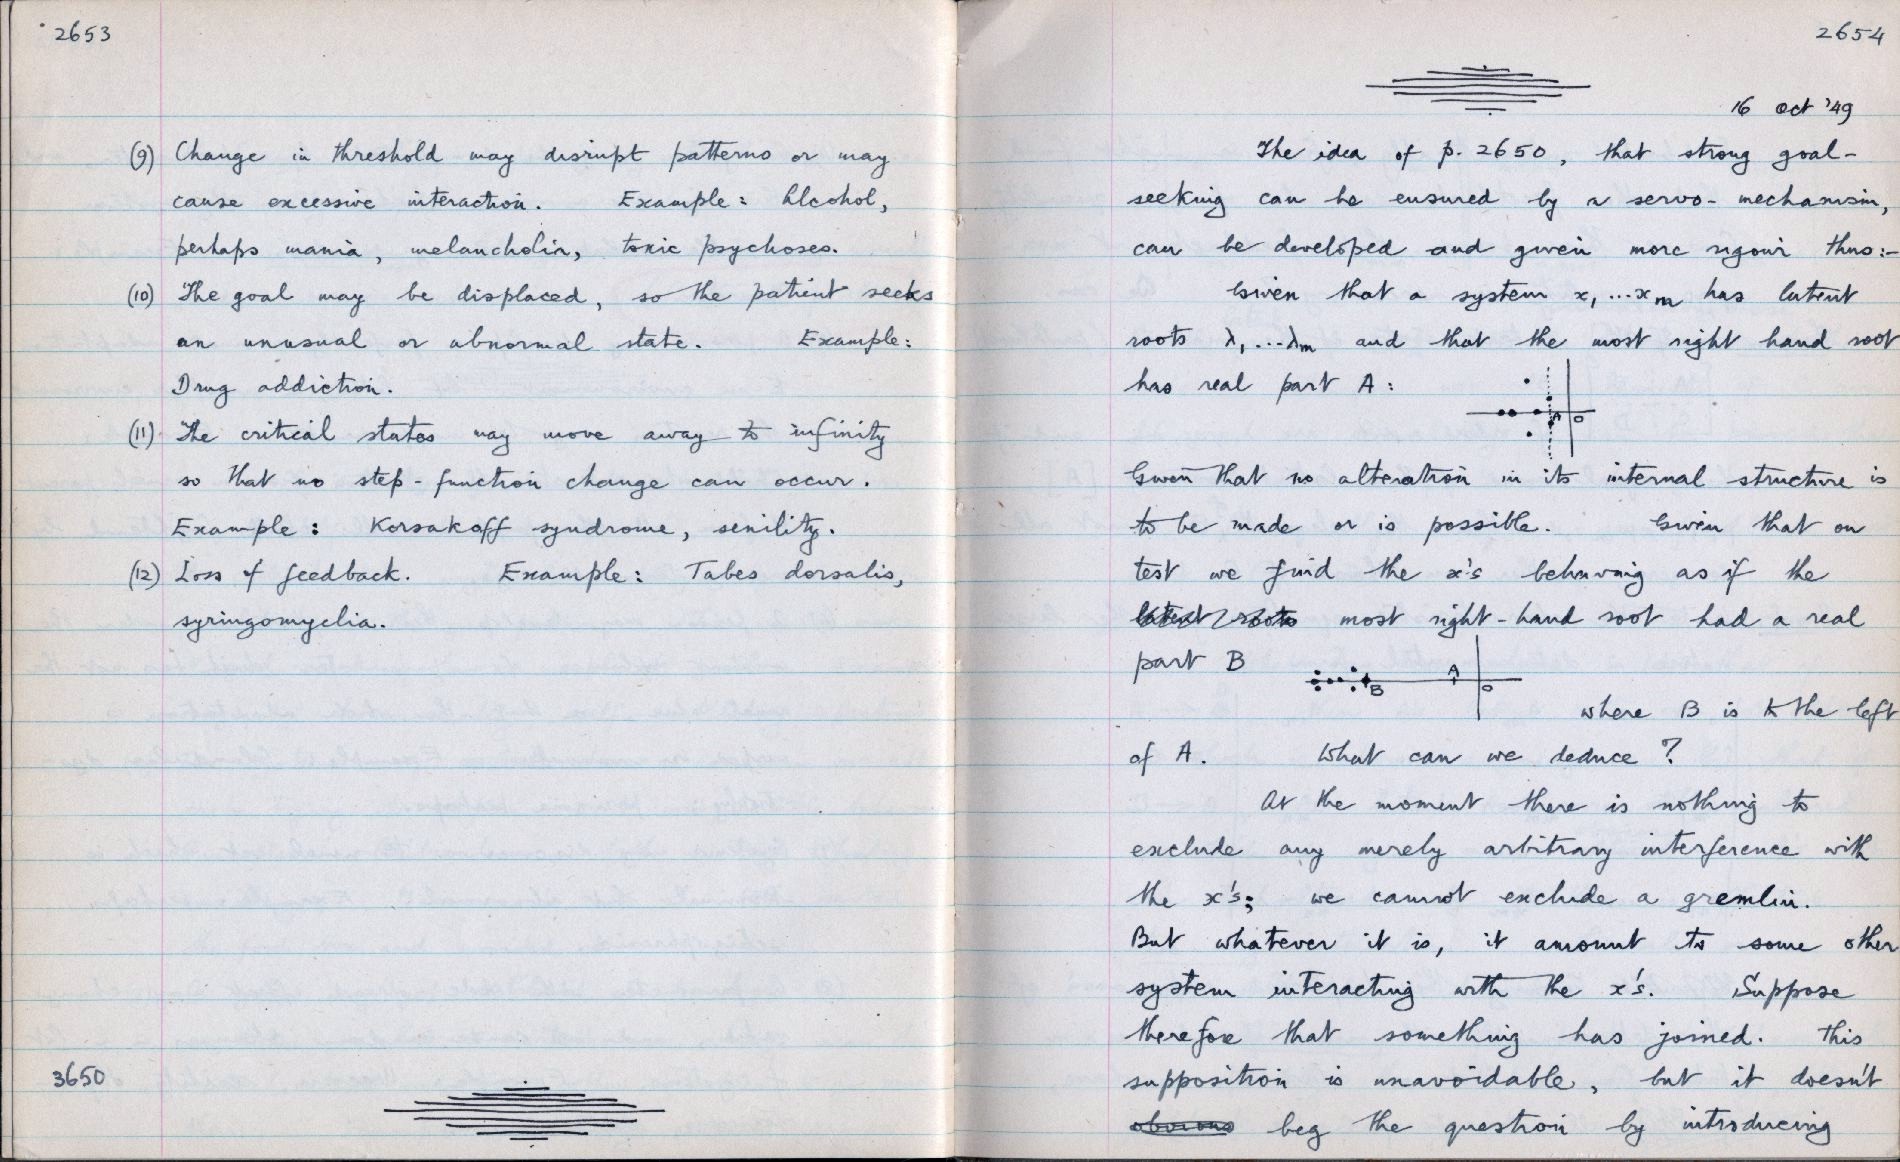 2653
(9) Change in threshold may disrupt patterns or may
cause excessive interaction. Example: Alcohol,
perhaps mania, melancholia, toxic psychoses.
(10) The goal may be displaced, so the patient seeks
an unusual or abnormal state. Example:
Drug addiction.
(11) The critical states may move away to infinity
so that no step-function change can occur.
Example: Korsakoff syndrome, senility.
(12) Loss of feedback. Example: Tabes dorsalis,
syringomyelia.
3650
2654
16 Oct '49
The idea of p. 2650, that strong goal-
seeking can be ensured by a servo-mechanism,
can be developed and given more rigour thus:-
Given that a system x₁...xₘ has latent
roots λ₁...λₘ and that the most right hand root
has real part A:
A O
Given that no alteration in its internal structure is
to be made or is possible. Given that on
test we find the x's behaving as if the
latent roots most right-hand root had a real
part B
B A O
where B is to the left
of A. What can we deduce?
At the moment there is nothing to
exclude any merely arbitrary interference with
the x's; we cannot exclude a gremlin.
But whatever it is, it amount to some other
system interacting with the x's. Suppose
therefore that something has joined. This
supposition is unavoidable, but it doesn't
beg the question by introducing